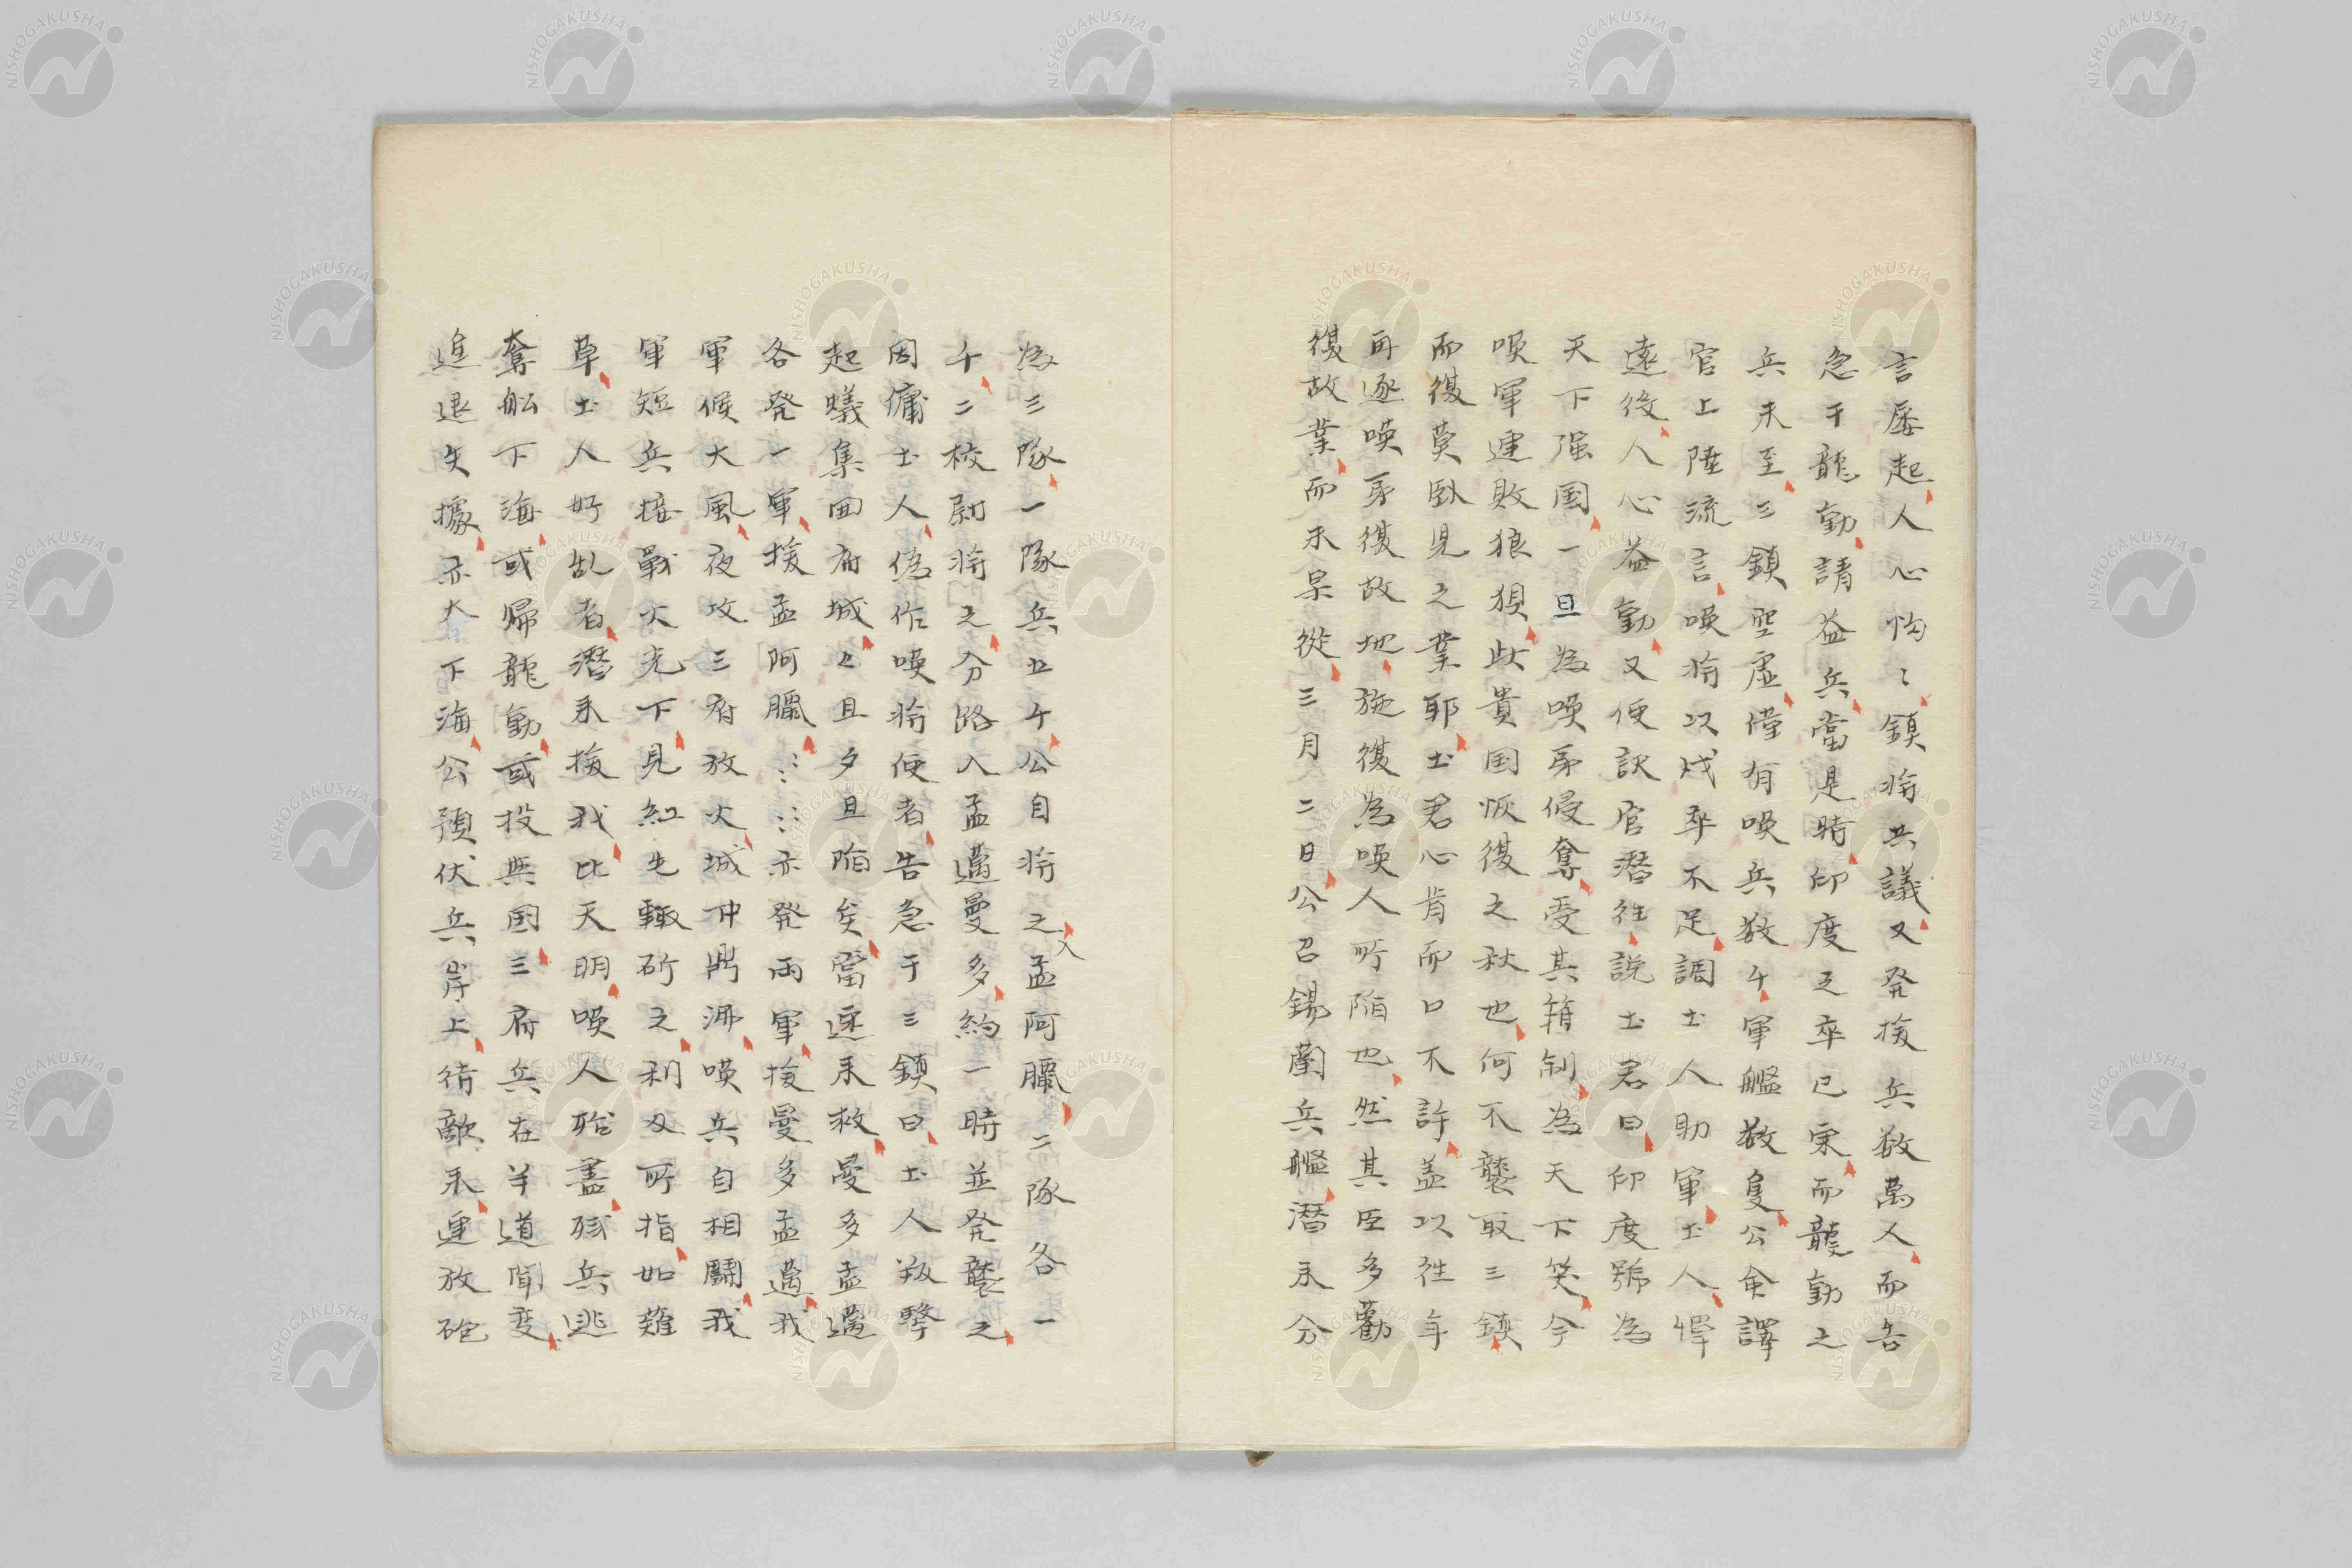 言屡起人心恟〻鎮将共議又発援兵数萬人而告
急于龍動請益兵當是時印度之卒已宋而龍動之
兵未至三鎮空虚僅有唤兵数千軍艦数隻公令譯
官上陸流言唤将以戍卒不足調士人助軍士人憚
遠役人心益動又使訳官潜往説士君曰印度號為
天下强国一旦為唤夷侵奪受其箝制為天下笑今
唤軍連敗狼狽此貴国恢復之秋也何不襲取三鎮
而復莫卧児之業耶土君心肯而口不許盖以往年
再逐唤夷復故地旋復為唤人所陥也然其臣多勸
復故業而未果從三月二日公召錫蘭兵艦潜来分
為三隊一隊兵五千公自将之入孟阿臘二隊各一
千二校尉将之分路入孟邁曼多約一時並発襲之
因傭土人偽作唤将使者告急于三鎮曰土人叛撃
起蟻集囬府城〻且夕且陥矣當速来救曼多孟邁
各発一軍援孟阿臘……亦発両軍援曼多孟邁我
軍候大風夜攻三府放火城中鼎沸唤兵自相鬪我
軍短兵接戰火光下見紅毛輙斫之利刃所指如薙
草土人好乱者潜来援我比天明唤人殆盡残兵逃
奪船下海或歸龍動或投無国三府兵在半道聞変
進退失據亦大下海公預伏兵岸上待敵来連放砲